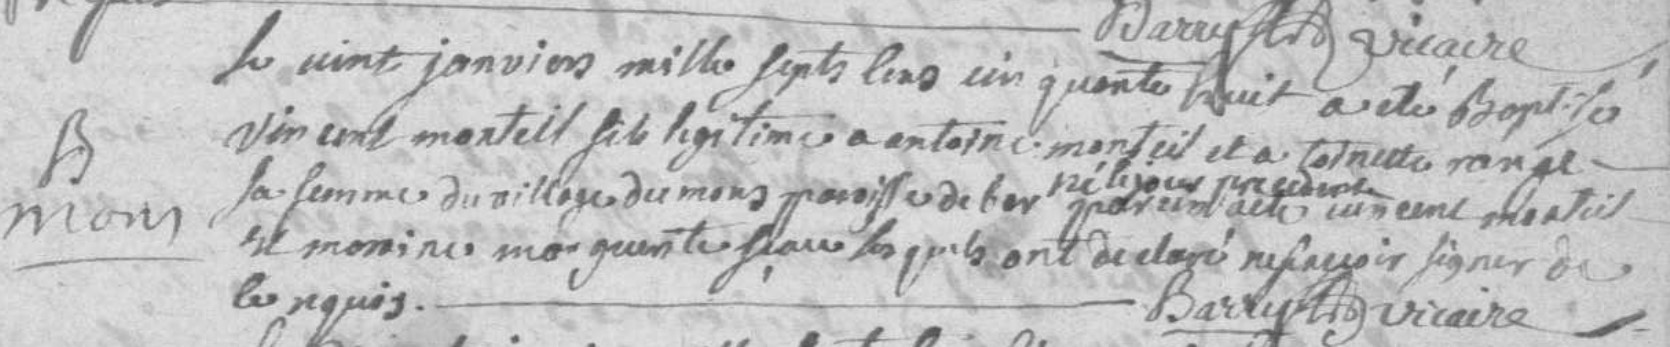 Barry Vicaire
le vint janviers mille septs cens cinquante huit a eté Baptisé
B
Vincent monteil fils legitime a antoine monteil et a toinette
né le jour precedent
sa femme du village du mons paroisse de bar parrein a eté vincent monteil
Mons
et marrine marguerite lesquels ont declaré ne scavoir signer de
ce requis. Barry Vicaire